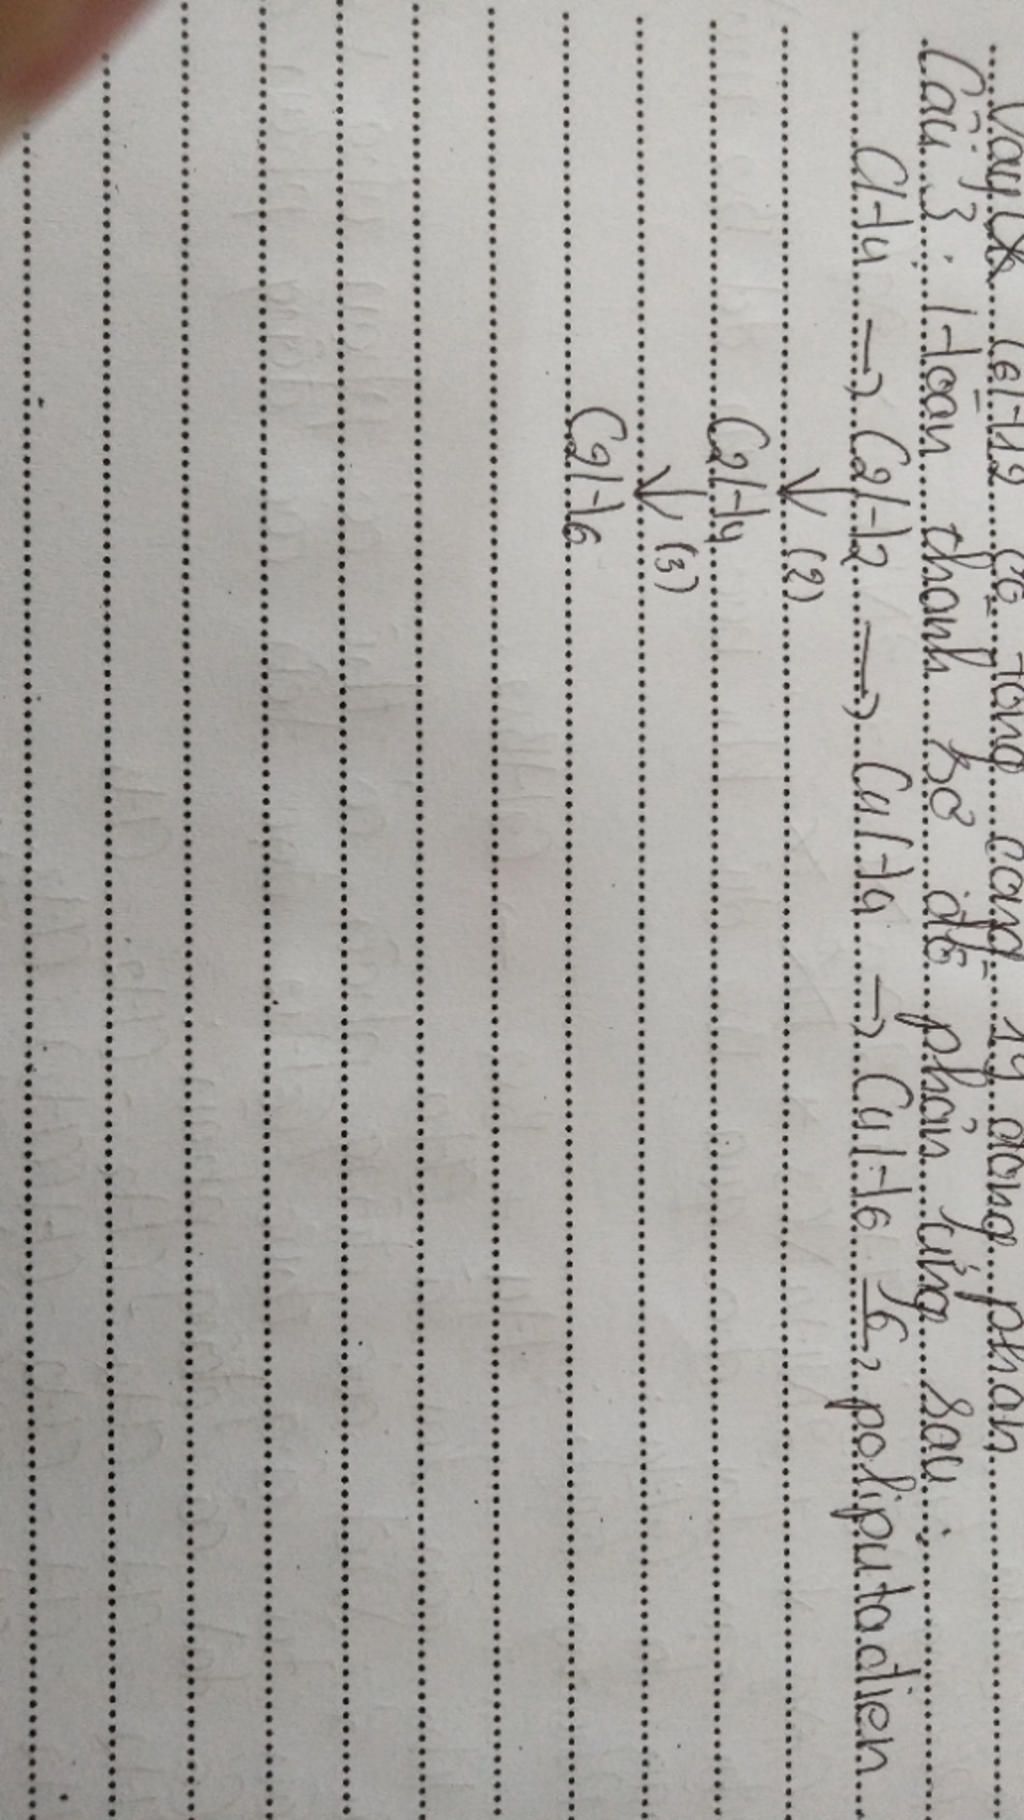 Vậy X C6H12 có tổng cộng 19 đồng phân
Câu 3: Hoàn thành sơ đồ phản ứng sau:
CH4 → C2H2 → C4H4 → C4H6 6→ poliputadien
↓ (2)
C2H4
↓ (3)
C2H6